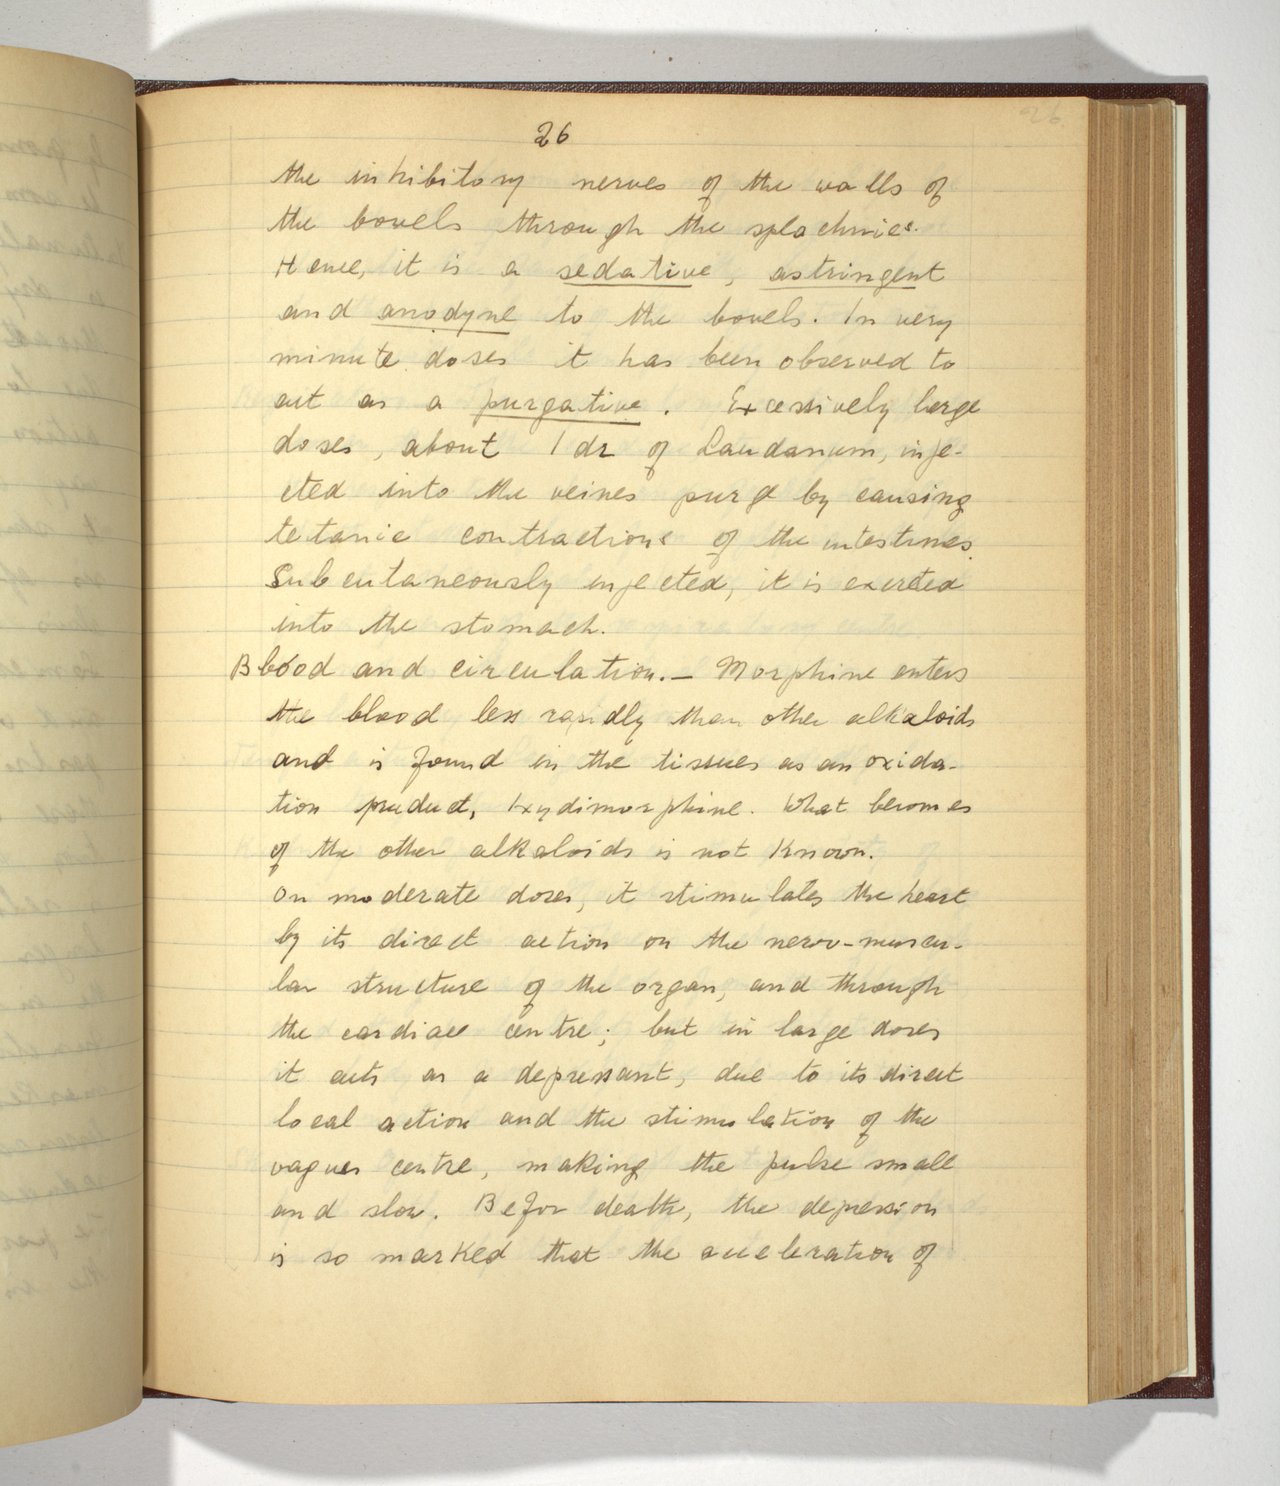 26
26
the inhibitory nerves of the walls of
the bowels through the splachnics.
Hence, it is a sedative, astringent
and anodyne to the bowels. In very
minute doses it has been observed to
act as a purgative. Excessively large
doses, about 1 dr of Laudanum, inje-
cted into the veines purge by causing
tetanic contractions of the intestines.
Subcutaneously injected, it is excreted
into the stomach.
Blood and circulation.— Morphine enters
the blood less rapidly than other alkaloids
and is found in the tissues as an oxida-
tion product, Oxydimorphine. What becomes
of the other alkaloids is not known.
On moderate doses, it stimulates the heart
by its direct action on the nervo-muscu-
lar structure of the organ, and through
the cardiac centre; but in large doses
it acts as a depressant, due to its direct
local action and the stimulation of the
vagues centre, making the pulse small
and slow. Befor death, the depression
is so marked that the acceleration of